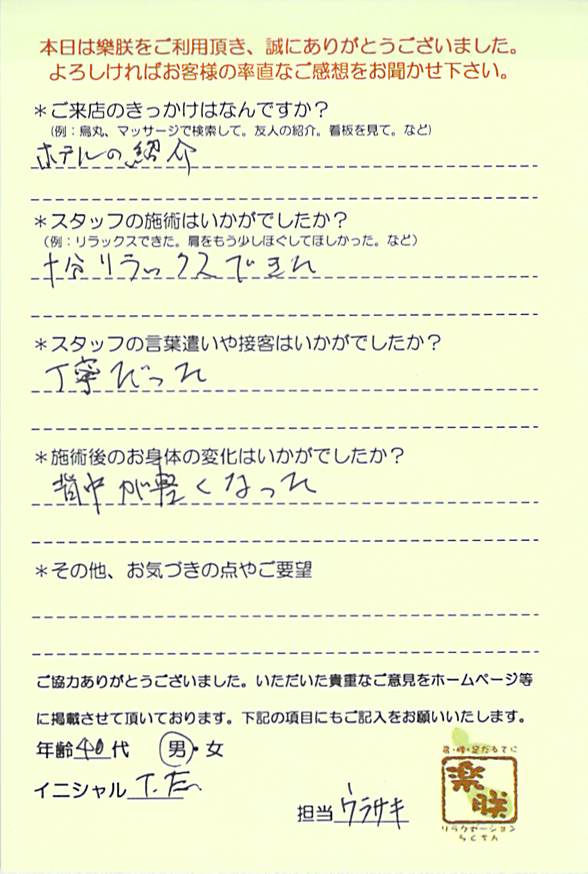 本日は樂朕をご利用頂き、誠にありがとうございました。
よろしければお客様の率直なご感想をお聞かせ下さい。
＊ご来店のきっかけはなんですか？
（例：烏丸、マッサージで検索して。友人の紹介。看板を見て。など）
ホテルの紹介
＊スタッフの施術はいかがでしたか？
（例：リラックスできた。肩をもう少しほぐしてほしかった。など）
十分リラックスできた
＊スタッフの言葉遣いや接客はいかがでしたか？
丁寧だった
＊施術後のお身体の変化はいかがでしたか？
背中が軽くなった
＊その他、お気づきの点やご要望
ご協力ありがとうございました。いただいた貴重なご意見をホームページ等
に掲載させて頂いております。下記の項目にもご記入をお願いいたします。
年齢 40 代 男・女
イニシャル T.
担当 ウラサキ
樂朕
リラクゼーション
らくちん